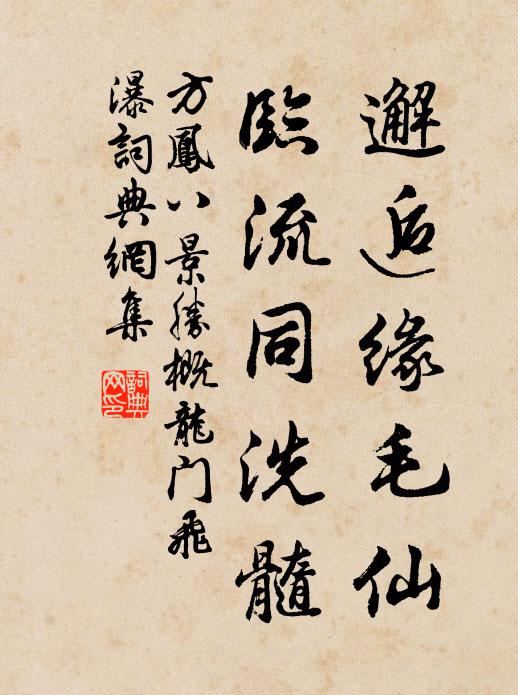 邂逅缘毛仙
臨流同洗髓
方鳳八景勝概龍门飛
瀑詞典網集
詞典网印